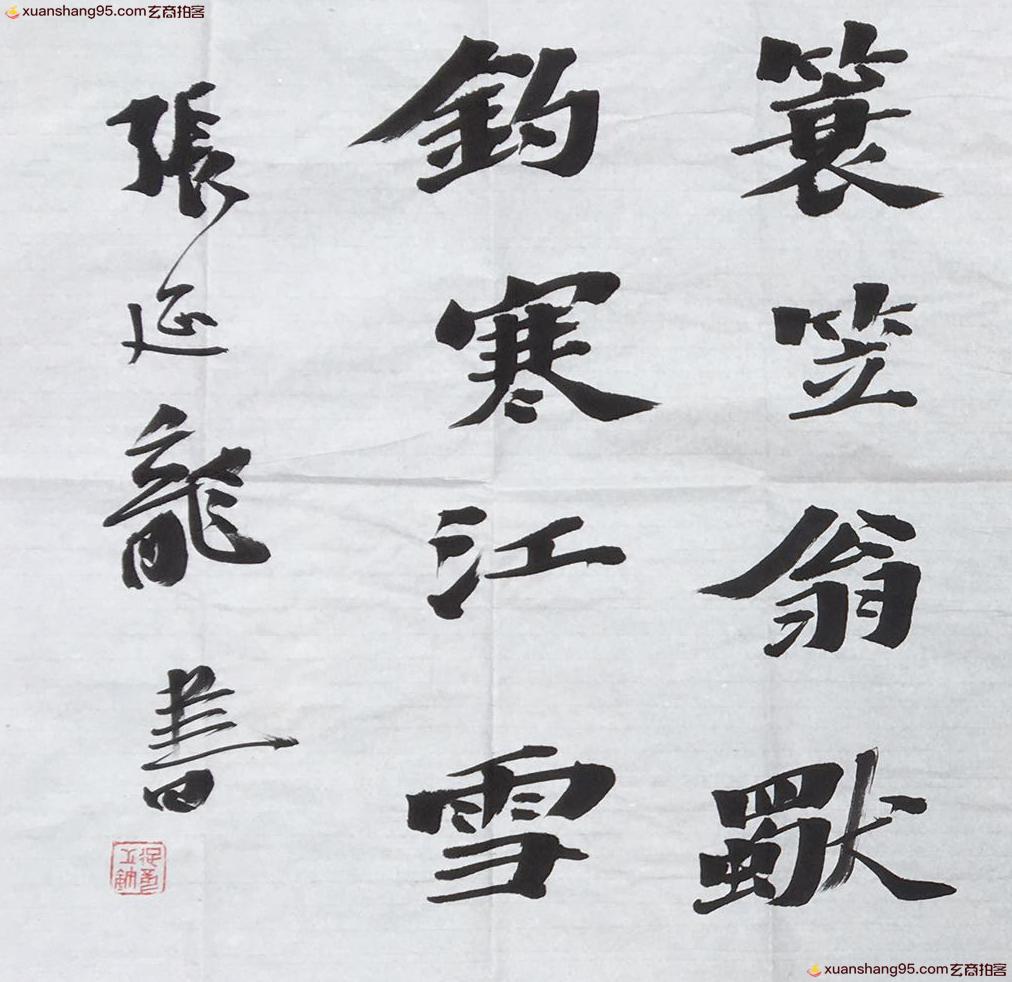 xuanshang95.com玄商拍客
簑笠翁獨
釣寒江雪
張延龍書
xuanshang95.com玄商拍客